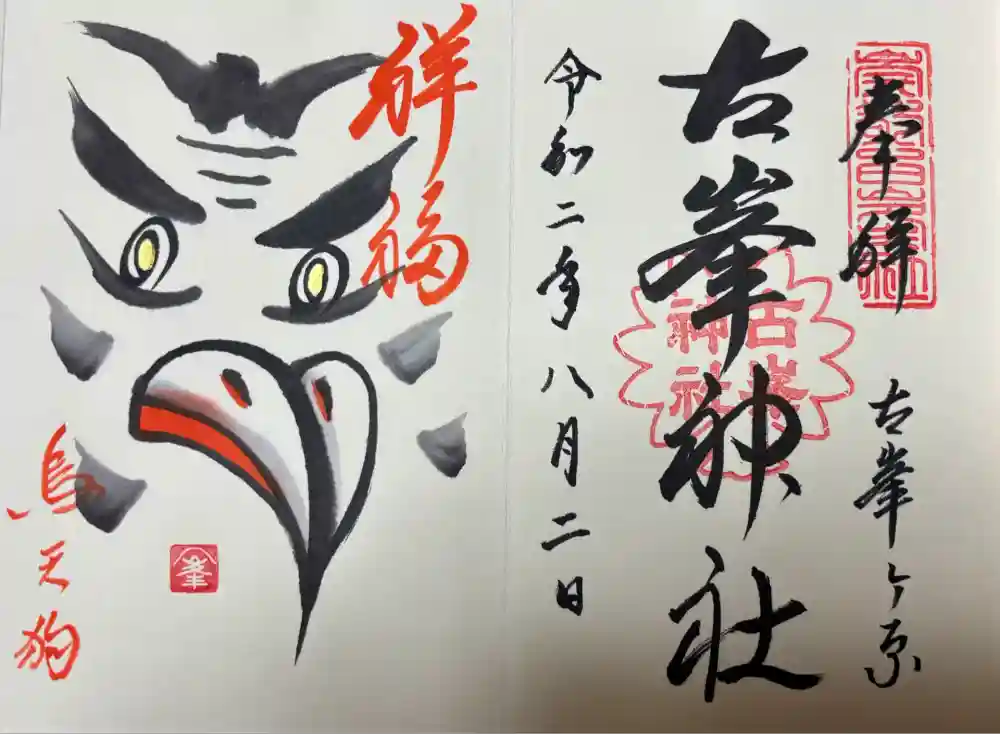 奉拝
古峯ヶ原
古峯神社
古峯
神社
令和二年八月二日
祥福
烏天狗
峯